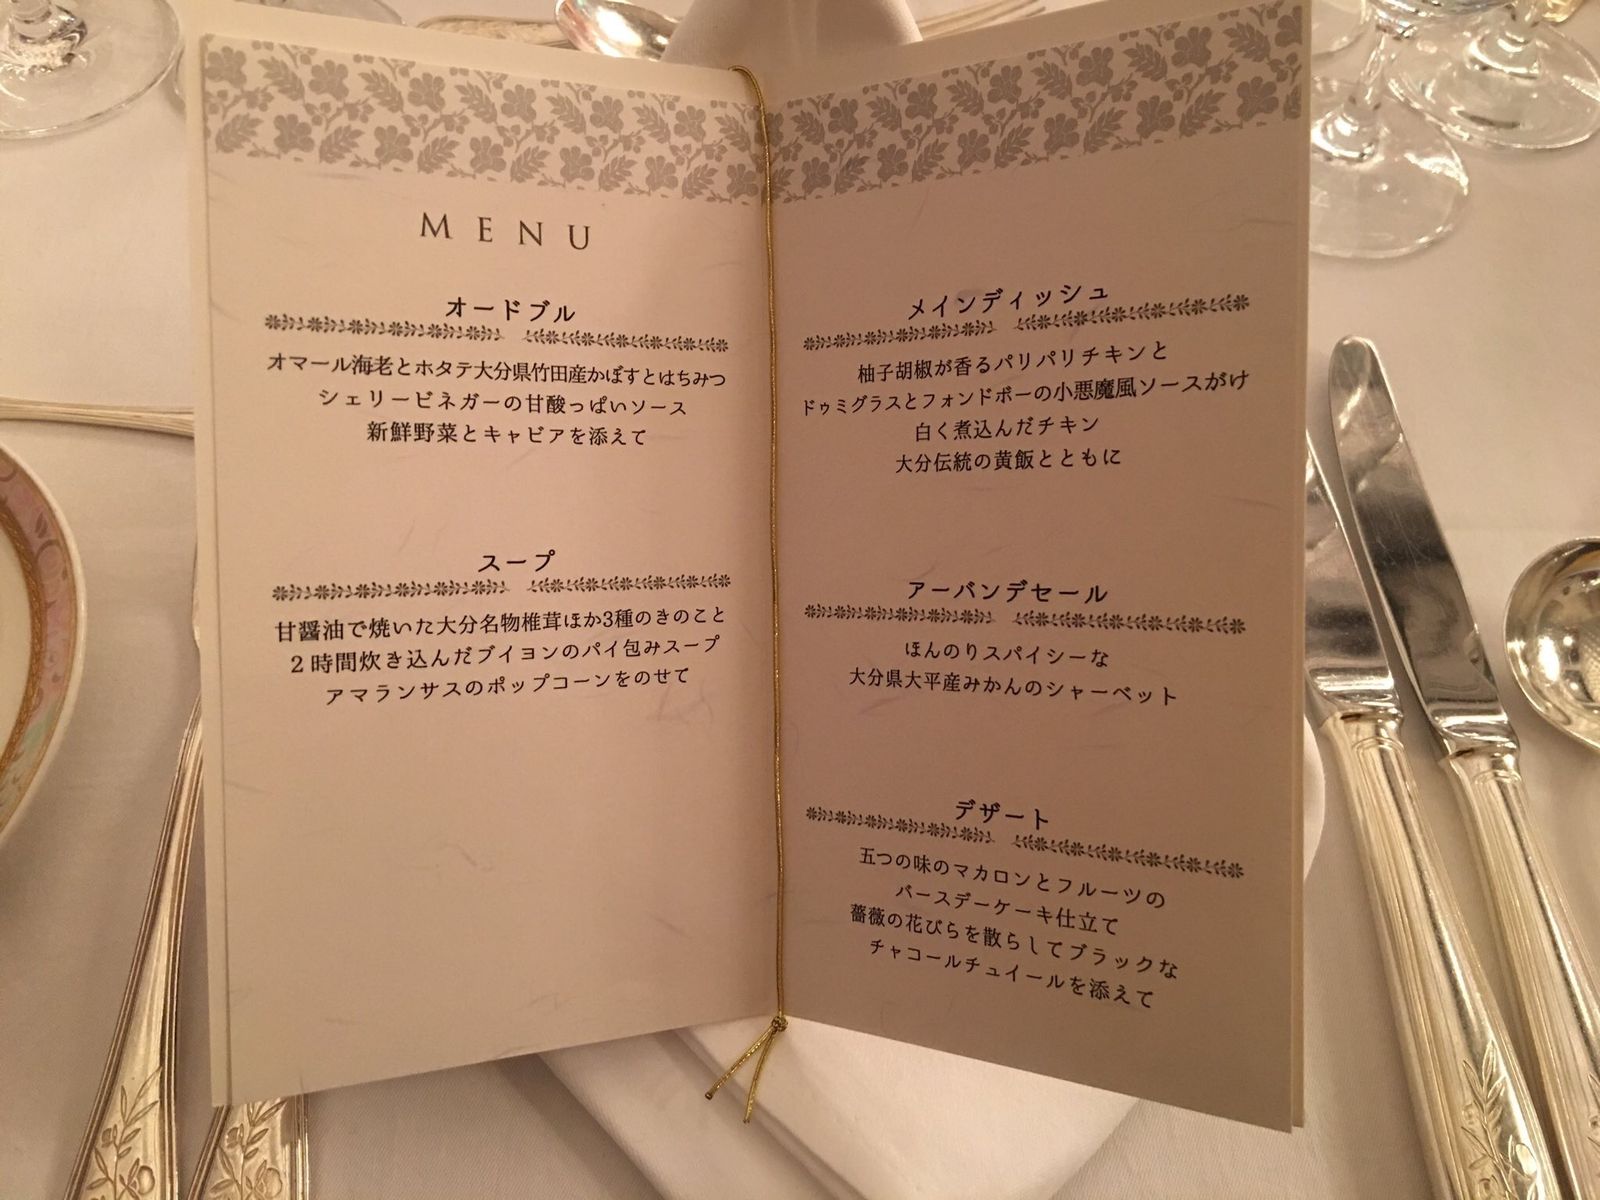 MENU
オードブル
オマール海老とホタテ大分県竹田産かぼすとはちみつ
シェリービネガーの甘酸っぱいソース
新鮮野菜とキャビアを添えて
スープ
甘醤油で焼いた大分名物椎茸ほか3種のきのこと
２時間炊き込んだブイヨンのパイ包みスープ
アマランサスのポップコーンをのせて
メインディッシュ
柚子胡椒が香るパリパリチキンと
ドゥミグラスとフォンドボーの小悪魔風ソースがけ
白く煮込んだチキン
大分伝統の黄飯とともに
アーバンデセール
ほんのりスパイシーな
大分県大平産みかんのシャーベット
デザート
五つの味のマカロンとフルーツの
バースデーケーキ仕立て
薔薇の花びらを散らしてブラックな
チャコールチュイールを添えて